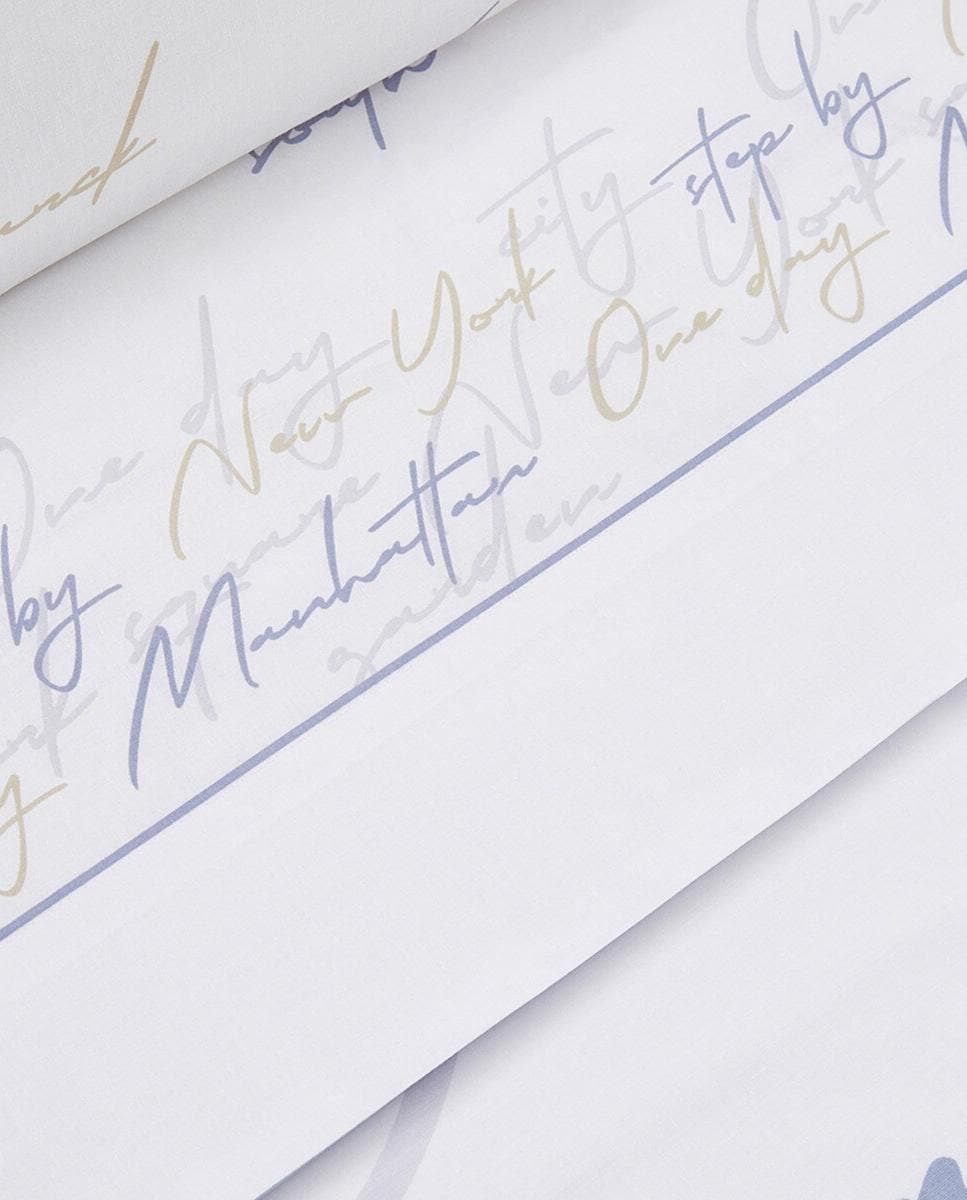 city step by
York
New York One day
One day New
by square Manhattan
garden